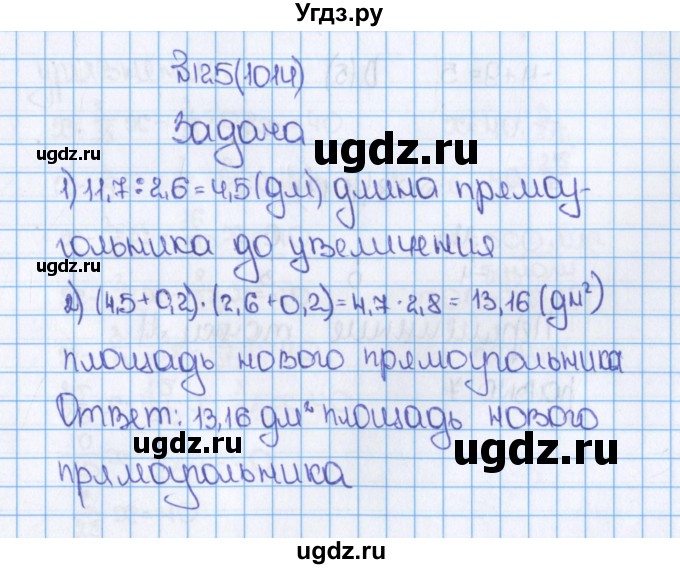 Угдз.ру
№125(1014)
Задача
ugdz.ru ugdz.ru
1) 11,7:2,6=4,5(дм) длина прямоу-
гольника до увеличения
ugdz.ru
2) (4,5+0,2)·(2,6+0,2)=4,7·2,8=13,16(дм²)
площадь нового прямоугольника
Ответ: 13,16 дм² площадь нового
ugdz.ru ugdz.ru
прямоугольника
ugdz.ru